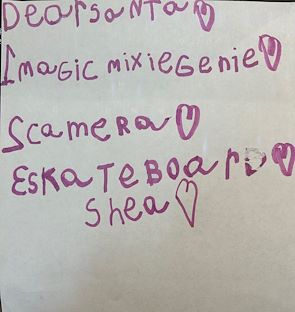 Dear santa
1magic mixie genie
5camera
Eskateboard
Shea